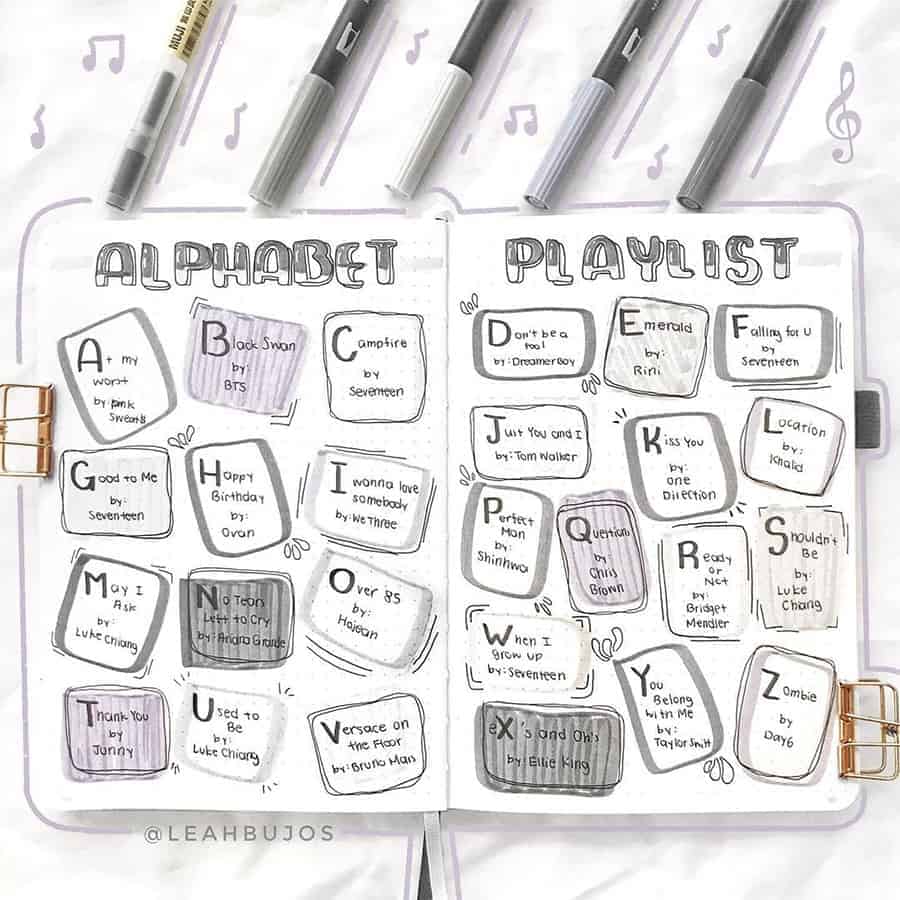 MUJI
ALPHABET
At my
worst
by: pink
Sweat$
Black Swan
by:
BTS
Campfire
by
Seventeen
Good to Me
by:
Seventeen
Happy
Birthday
by:
Ovan
I wanna love
somebody
by: We Three
May I
Ask
by:
Luke Chiang
No Tears
Left to Cry
by: Ariana Grande
Over 85
by:
Hojean
Thank You
by
Junny
Used to
Be
by:
Luke Chiang
Versace on
the Floor
by: Bruno Mars
PLAYLIST
Don't be a
fool
by: Dreamer Boy
Emerald
by:
Rini
Falling for U
by
Seventeen
Just You and I
by: Tom Walker
Kiss You
by:
One
Direction
Location
by:
Khalid
Perfect
Man
by:
Shinhwa
Questions
by:
Chris
Brown
Ready
or
Not
by:
Bridget
Mendler
Shouldn't
Be
by:
Luke
Chiang
When I
grow up
by: Seventeen
You
Belong
with Me
by:
Taylor Swift
Zombie
by
Day6
eX's and Oh's
by: Ellie King
@LEAHBUJOS